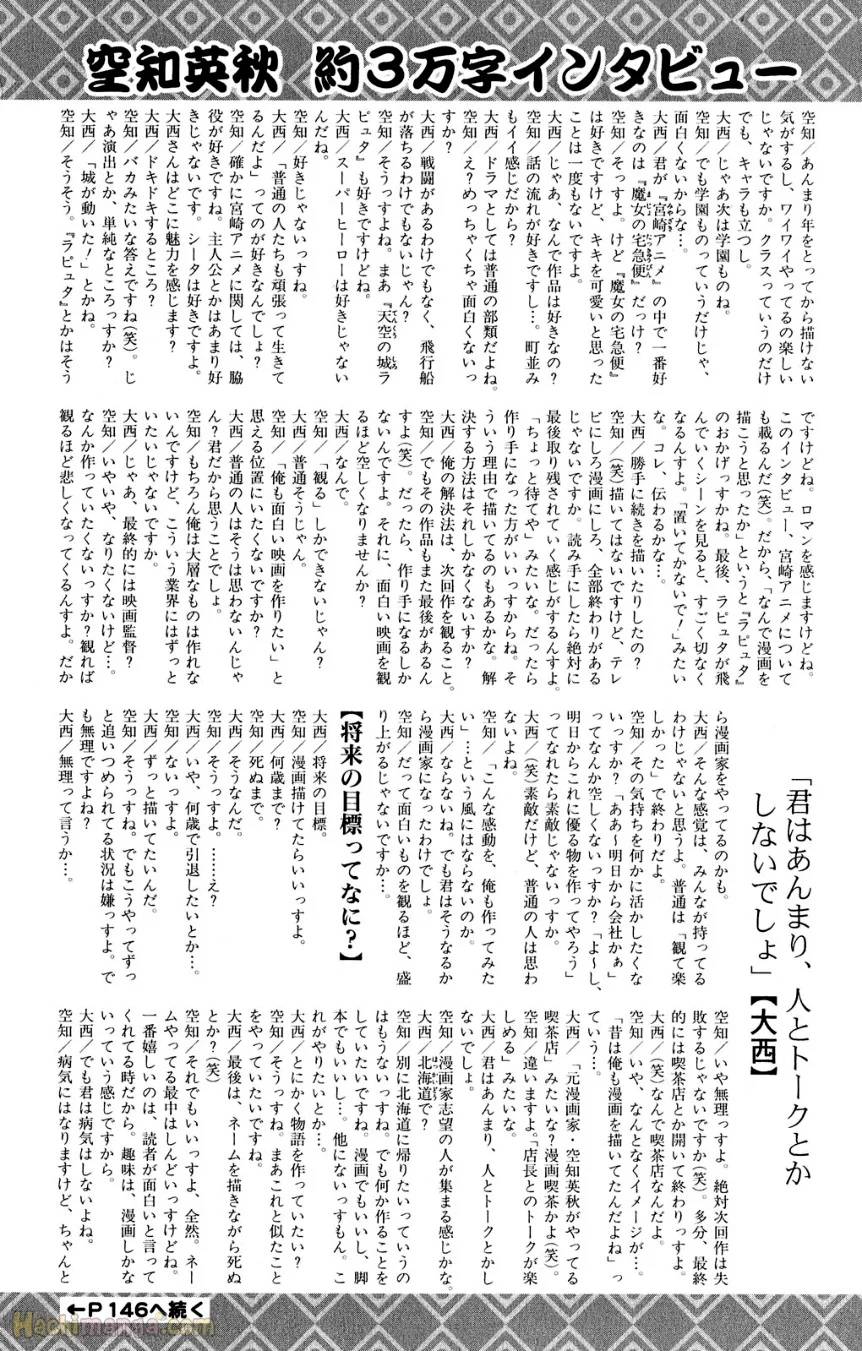 空知英秋 約3万字インタビュー
空知/あんまり年をとってから描けない
気がするし、ワイワイやってるの楽しい
じゃないですか。クラスっていうのだけ
でも、キャラも立つし。
大西/じゃあ次は学園ものね。
空知/でも学園ものっていうだけじゃ、
面白くないからな…。
大西/君が『宮崎アニメ』の中で一番好
きなのは『魔女の宅急便』だっけ?
空知/そっすよ。けど『魔女の宅急便』
は好きですけど、キキを可愛いと思った
ことは一度もないですよ。
大西/じゃあ、なんで作品は好きなの?
空知/話の流れが好きですし…。町並み
もイイ感じだから?
大西/ドラマとしては普通の部類だよね。
空知/え?めっちゃくちゃ面白くないっ
すか?
大西/戦闘があるわけでもなく、飛行船
が落ちるわけでもないじゃん?
空知/そうっすよね。まあ『天空の城ラ
ピュタ』も好きですけどね。
大西/スーパーヒーローは好きじゃない
んだね。
空知/好きじゃないっすね。
大西/「普通の人たちも頑張って生きて
るんだよ」ってのが好きなんでしょ?
空知/確かに宮崎アニメに関しては、脇
役が好きですね。主人公とかはあまり好
きじゃないです。シータは好きですよ。
大西さんはどこに魅力を感じます?
大西/ドキドキするところ?
空知/バカみたいな答えですね(笑)。じ
ゃあ演出とか、単純なところっすか?
大西/「城が動いた!」とかね。
空知/そうそう。『ラピュタ』とかはそう
ですけどね。ロマンを感じますけどね。
このインタビュー、宮崎アニメについて
も載るんだ(笑)。だから、「なんで漫画を
描こうと思ったか」というと『ラピュタ』
のおかげっすかね。最後、ラピュタが飛
んでいくシーンを見ると、すごく切なく
なるんすよ。「置いてかないで!」みたい
な。コレ、伝わるかな…。
大西/勝手に続きを描いたりしたの?
空知/(笑)描いてはないですけど、テレ
ビにしろ漫画にしろ、全部終わりがある
じゃないですか。読み手にしたら絶対に
最後取り残されていく感じがするんすよ。
「ちょっと待てや」みたいな。だったら
作り手になった方がいいっすからね。そ
ういう理由で描いてるのもあるかな。解
決する方法はそれしかなくないすか?
大西/俺の解決法は、次回作を観ること。
空知/でもその作品もまた最後があるん
すよ(笑)。だったら、作り手になるしか
ないんですよ。それに、面白い映画を観
るほど空しくなりませんか?
大西/なんで。
空知/「観る」しかできないじゃん?
大西/普通そうじゃん。
空知/「俺も面白い映画を作りたい」と
思える位置にいたくないですか?
大西/普通の人はそうは思わないんじゃ
ん?君だから思うことでしょ。
空知/もちろん俺は大層なものは作れな
いんですけど、こういう業界にはずっと
いたいじゃないですか。
大西/じゃあ、最終的には映画監督?
空知/いやいや、なりたくないけど…。
なんか作っていたくないっすか?観れば
観るほど悲しくなってくるんすよ。だか
「君はあんまり、人とトークとか
しないでしょ」【大西】
ら漫画家をやってるのかも。
大西/そんな感覚は、みんなが持ってる
わけじゃないと思うよ。普通は「観て楽
しかった」で終わりだよ。
空知/その気持ちを何かに活かしたくな
いっすか?「ああ〜明日から会社かぁ」
ってなんか空しくないっすか?「よ〜し、
明日からこれに優る物を作ってやろう」
ってなれたら素敵じゃないっすか。
大西/(笑)素敵だけど、普通の人は思わ
ないよね。
空知/「こんな感動を、俺も作ってみた
い」…という風にはならないのか。
大西/ならないね。でも君はそうなるか
ら漫画家になったわけでしょ。
空知/だって面白いものを観るほど、盛
り上がるじゃないですか…。
【将来の目標ってなに?】
大西/将来の目標。
空知/漫画描けてたらいいっすよ。
大西/何歳まで?
空知/死ぬまで。
大西/そうなんだ。
空知/そうっすよ。……え?
大西/いや、何歳で引退したいとか…。
空知/ないっすよ。
大西/ずっと描いてたいんだ。
空知/そうっすね。でもこうやってずっ
と追いつめられてる状況は嫌っすよ。で
も無理ですよね?
大西/無理って言うか…。
空知/いや無理っすよ。絶対次回作は失
敗するじゃないですか(笑)。多分、最終
的には喫茶店とか開いて終わりっすよ。
大西/(笑)なんで喫茶店なんだよ。
空知/いや、なんとなくイメージが…。
「昔は俺も漫画を描いてたんだよね」っ
ていう…。
大西/「元漫画家・空知英秋がやってる
喫茶店」みたいな?漫画喫茶かよ(笑)。
空知/違いますよ。「店長とのトークが楽
しめる」みたいな。
大西/君はあんまり、人とトークとかし
ないでしょ。
空知/漫画家志望の人が集まる感じかな。
大西/北海道で?
空知/別に北海道に帰りたいっていうの
はもうないっすね。でも何か作ることを
していたいですね。漫画でもいいし、脚
本でもいいし…。他にないっすもん。こ
れがやりたいとか…。
大西/とにかく物語を作っていたい?
空知/そうっすね。まあこれと似たこと
をやっていたいですね。
大西/最後は、ネームを描きながら死ぬ
とか?(笑)
空知/それでもいいっすよ、全然。ネー
ムやってる最中はしんどいっすけどね。
一番嬉しいのは、読者が面白いと言って
くれてる時だから。趣味は、漫画しかな
いっていう感じですから。
大西/でも君は病気はしないよね。
空知/病気にはなりますけど、ちゃんと
←P146へ続く
Hachimanga.com